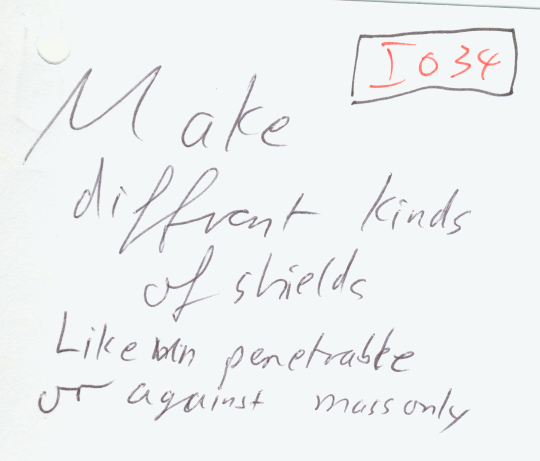 I034
Make
diffrent kinds
of shields
Like un penetrable
or against mass only